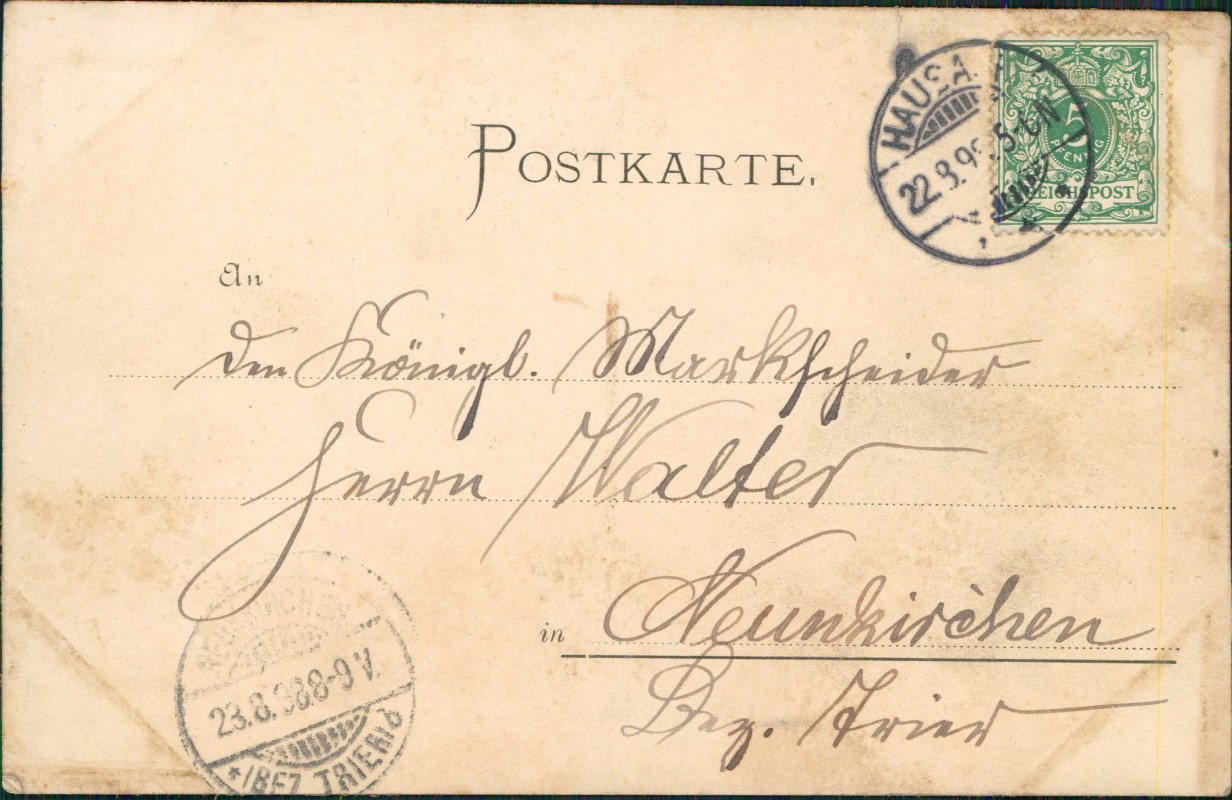 POSTKARTE.
HAUSA
22.8.98. 5-6N
5
PFENNIG
REICHSPOST
An
den Königl. Markscheider
Herrn Walter
in Neunkirchen
Bez. Trier
NEUNKIRCHEN
23.8.98 8-9 V.
*(BEZ. TRIER) b